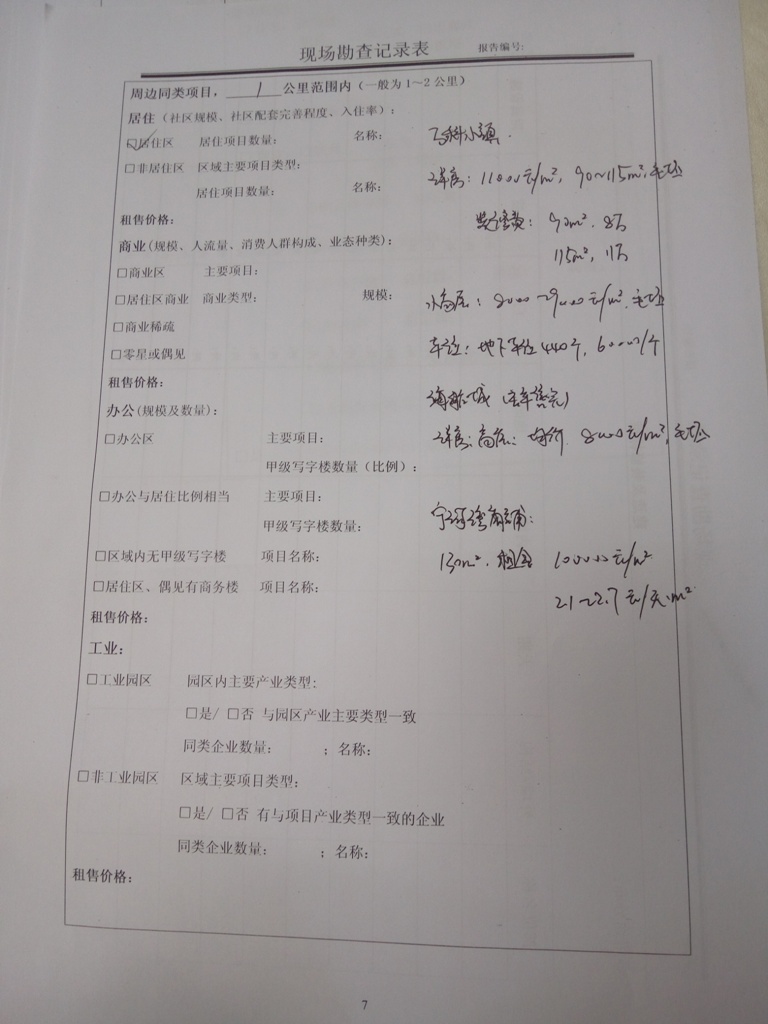 现场勘查记录表 报告编号:
周边同类项目，1公里范围内（一般为1～2公里）
居住（社区规模、社区配套完善程度、入住率）：
☑居住区 居住项目数量： 名称： 万科小镇.
□非居住区 区域主要项目类型：
洋房：11000元/m²，90~115m²，毛坯
居住项目数量： 名称：
租售价格： 90m². 8万
商业(规模、人流量、消费人群构成、业态种类)：
115m²，11万
□商业区 主要项目：
□居住区商业 商业类型： 规模： 小高层：8000~9000元/m²，毛坯
□商业稀疏
□零星或偶见 车位：地下车位440个，60000/个
租售价格：
办公(规模及数量)：
□办公区 主要项目： 洋房；高层：均价 8000元/m²，毛坯
甲级写字楼数量（比例）：
□办公与居住比例相当 主要项目：
甲级写字楼数量：
□区域内无甲级写字楼 项目名称： 130m². 租金
□居住区、偶见有商务楼 项目名称： 元/天·m²
租售价格：
工业：
□工业园区 园区内主要产业类型:
□是/ □否 与园区产业主要类型一致
同类企业数量： ；名称：
□非工业园区 区域主要项目类型：
□是/ □否 有与项目产业类型一致的企业
同类企业数量： ；名称：
租售价格：
7